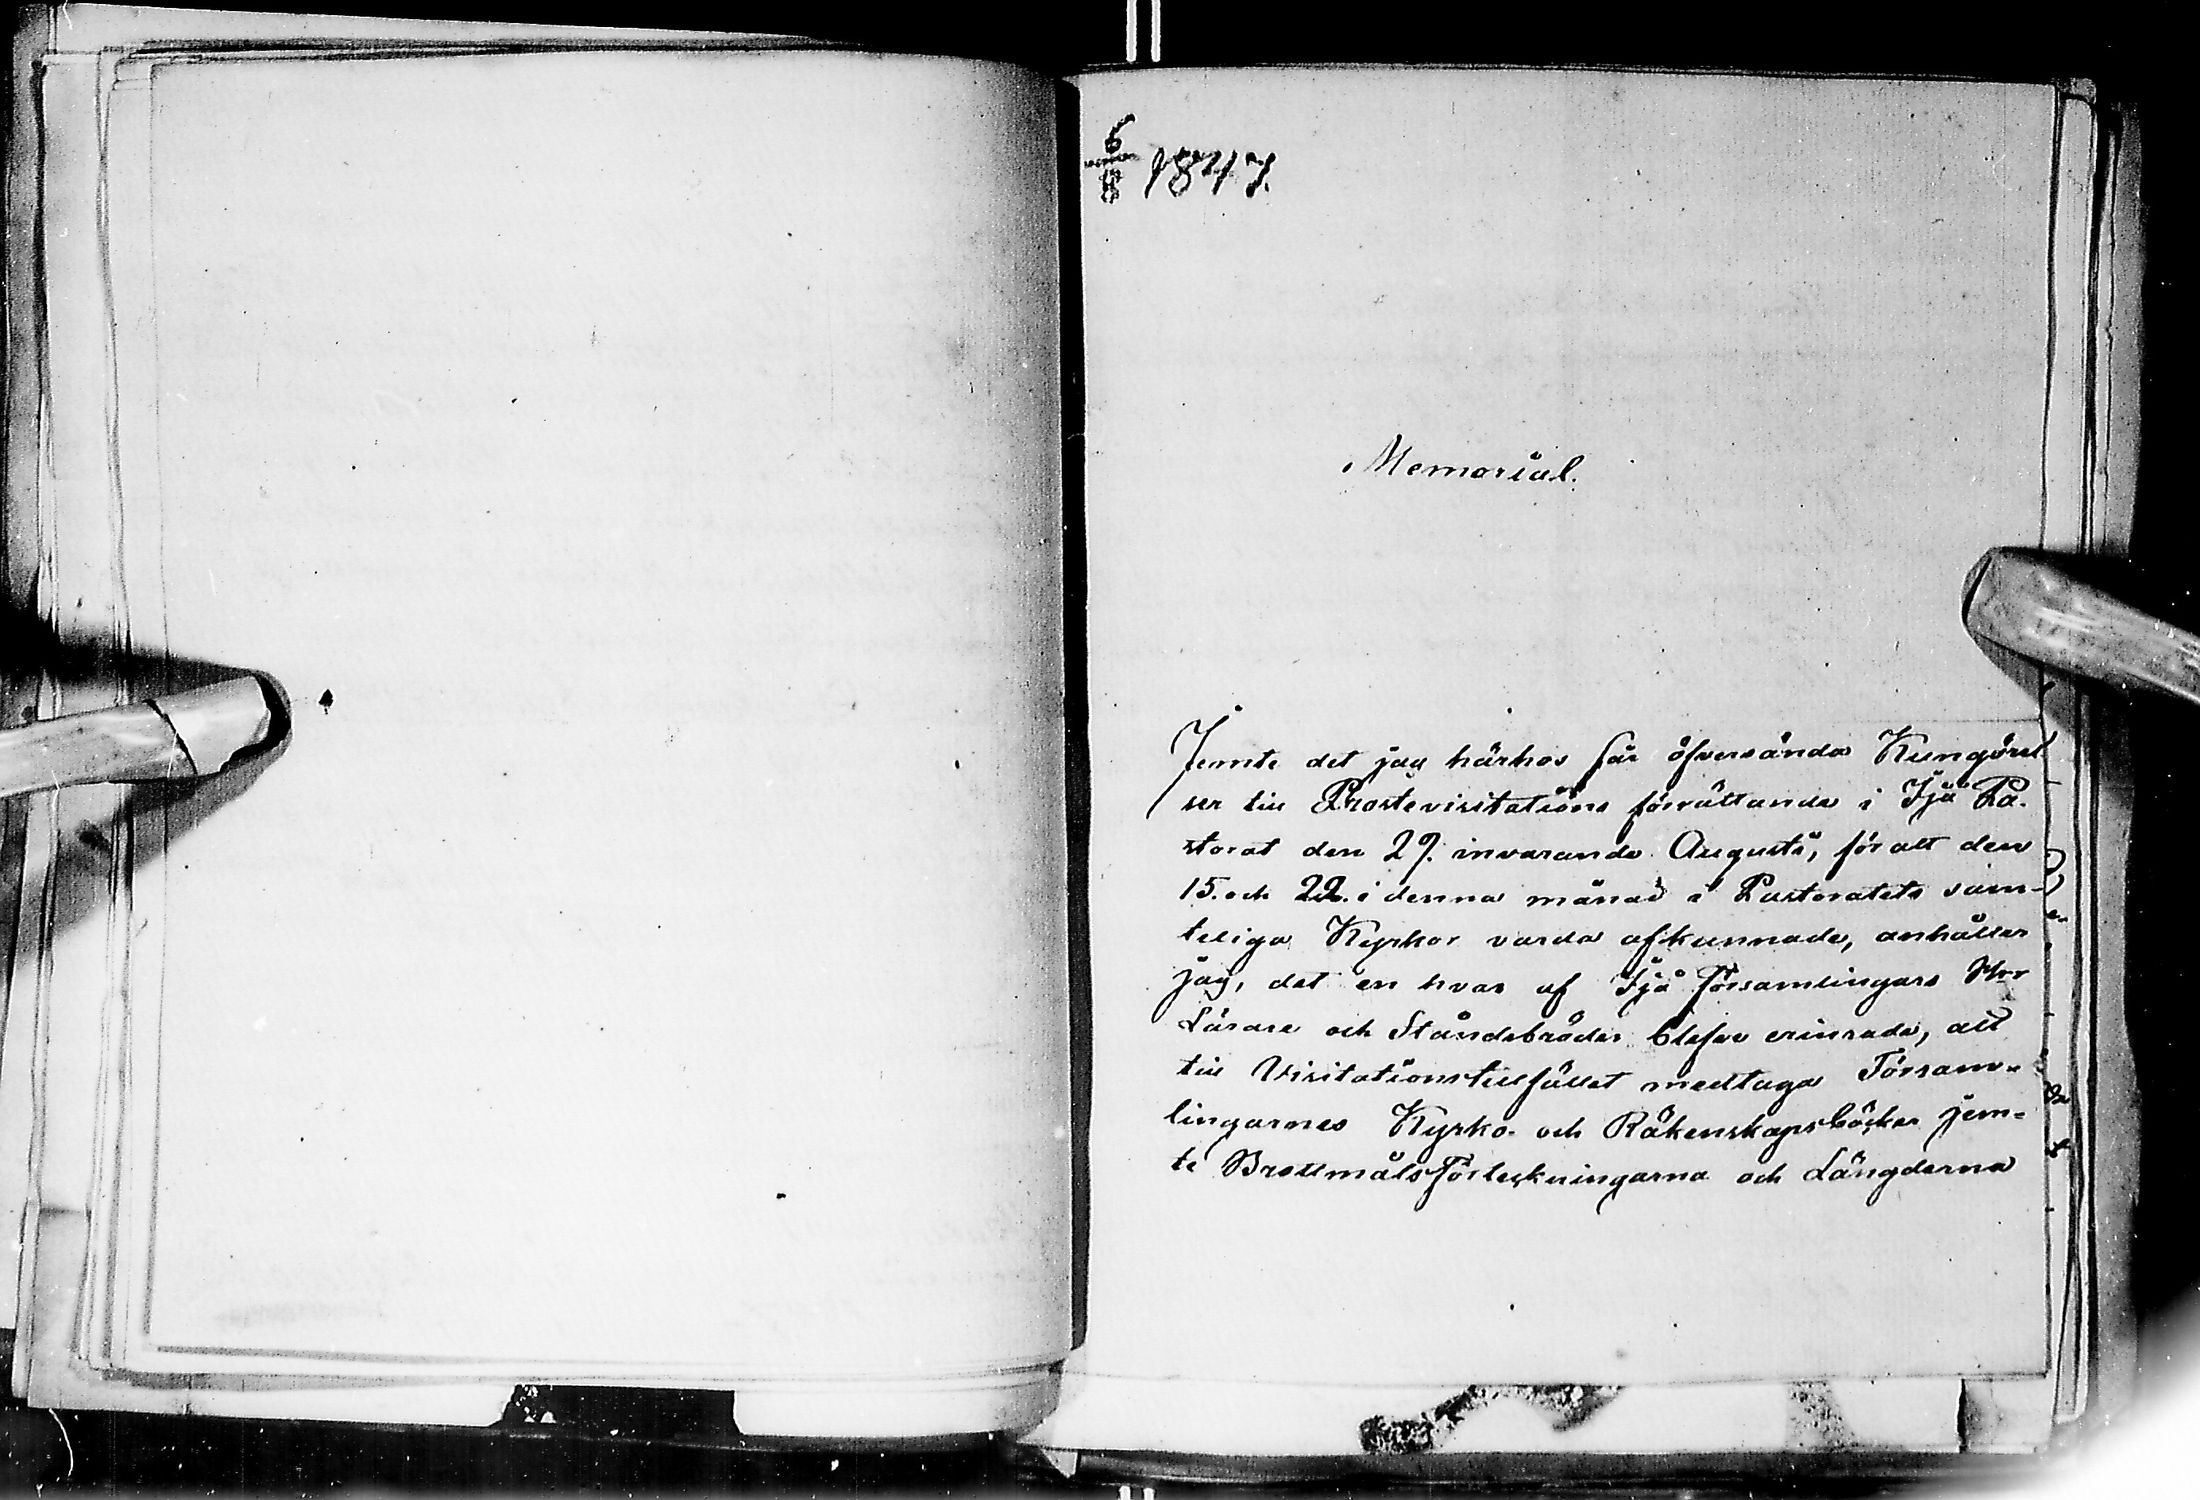 6/8 1847.
Memorial.
Jemte det jag härhos får öfversända Kungörel
ser till Prostevisitations förrättande i Ijå Pa-
storat den 29. invarande Augusti, för att den
15. och 22. i denna månad i Pastoratets sam-
teliga Kyrkor varda afkunnade, anhåller
jag, det en hvar af Ijå Församlingars Hrr
Lärare och Ståndsbröder blefve erinrade, att
till Visitationstillfället medtaga Försam-
lingarnes Kyrko- och Räkenskapsböcker jem-
te Brottmåls Förteckningarna och Längderna